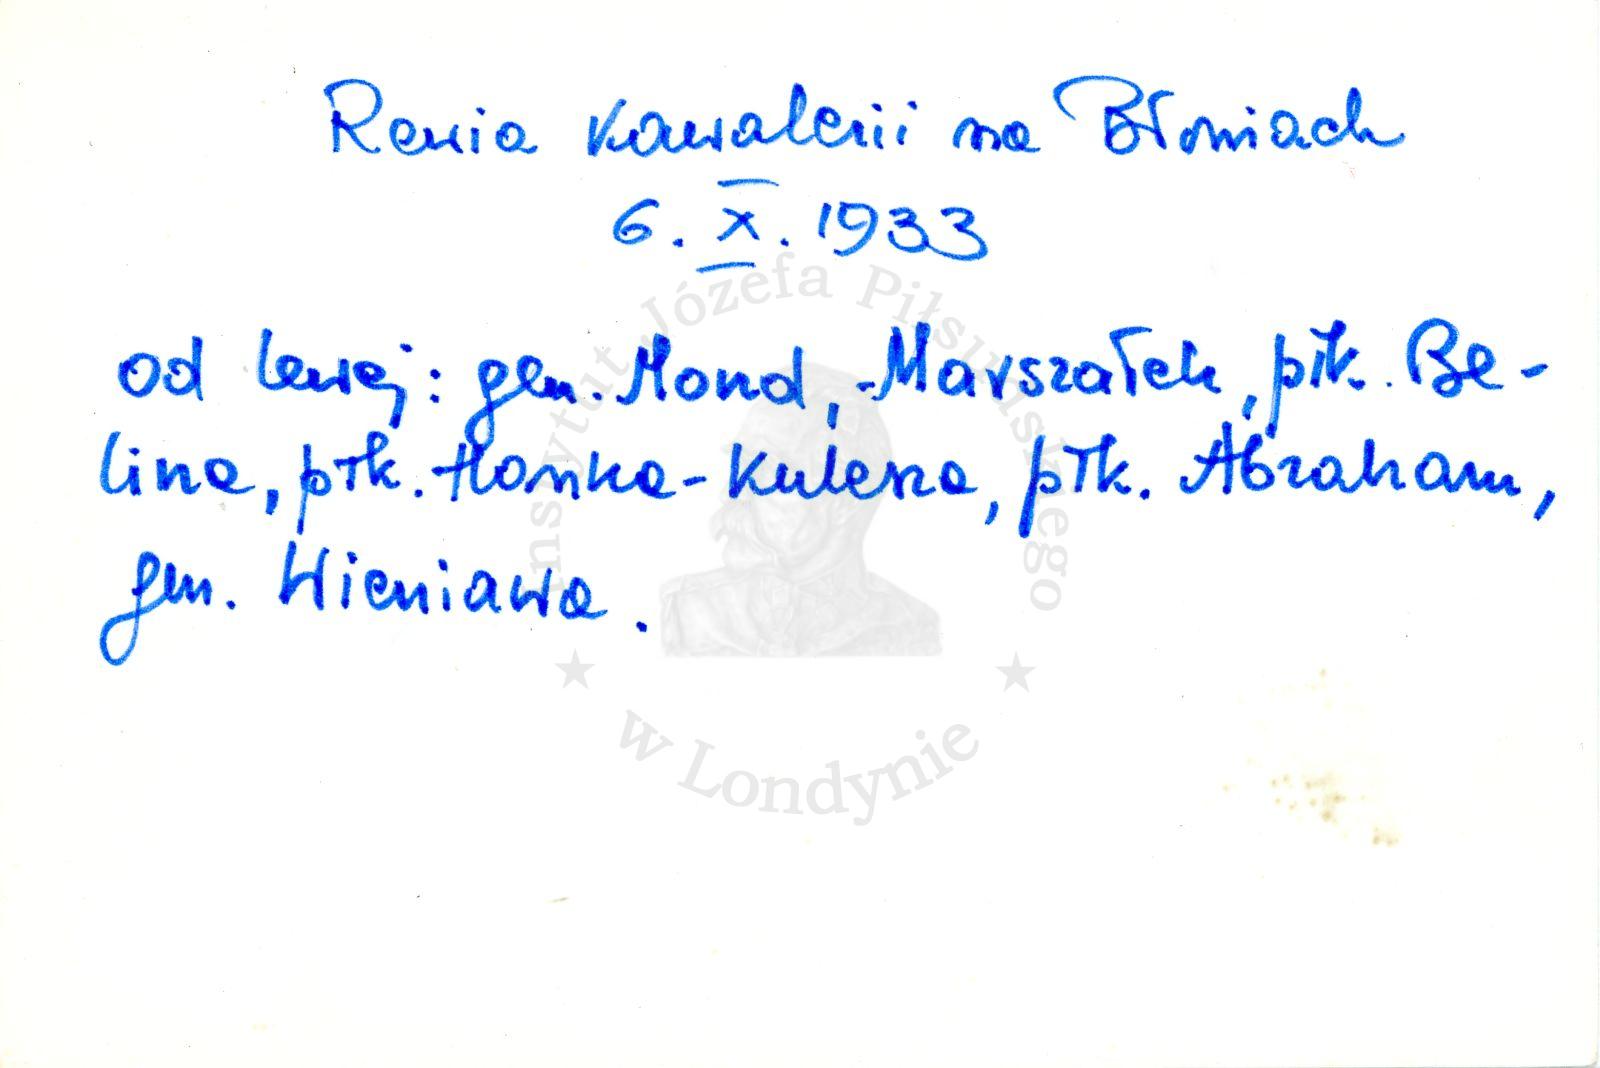 Rewia kawalerii na Błoniach
6. X. 1933
od lewej: gen. Mond, Marszałek, płk. Be-
lina, płk. Hańka-Kulesza, płk. Abraham,
gen. Wieniawa.
Instytut Józefa Piłsudskiego
w Londynie